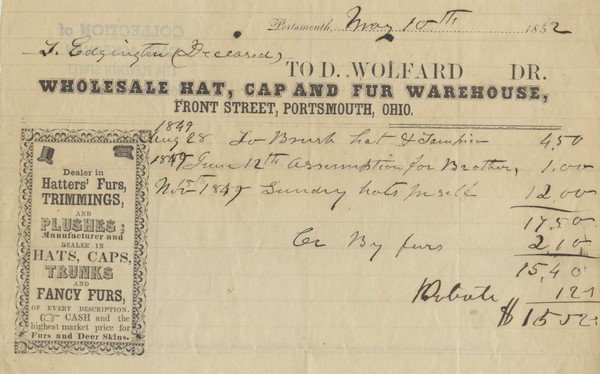 COLLECTION of
Portsmouth, May 10th 1852
T. Edgington (Deceased)
TO D. WOLFARD DR.
WHOLESALE HAT, CAP AND FUR WAREHOUSE,
FRONT STREET, PORTSMOUTH, OHIO.
1849
Aug 28 To Brush hat & 4,50
1849 June 12th assumption for Brother, 1.00
Novr 1849 Sundry hats pr self 12.00
17.50
Cr By furs 2,10
15,40
12
$15,52
Dealer in
Hatters' Furs,
TRIMMINGS,
AND
PLUSHES;
Manufacturer and
DEALER IN
HATS, CAPS,
TRUNKS
AND
FANCY FURS,
OF EVERY DESCRIPTION.
☞ CASH and the
highest market price for
Furs and Deer Skins.